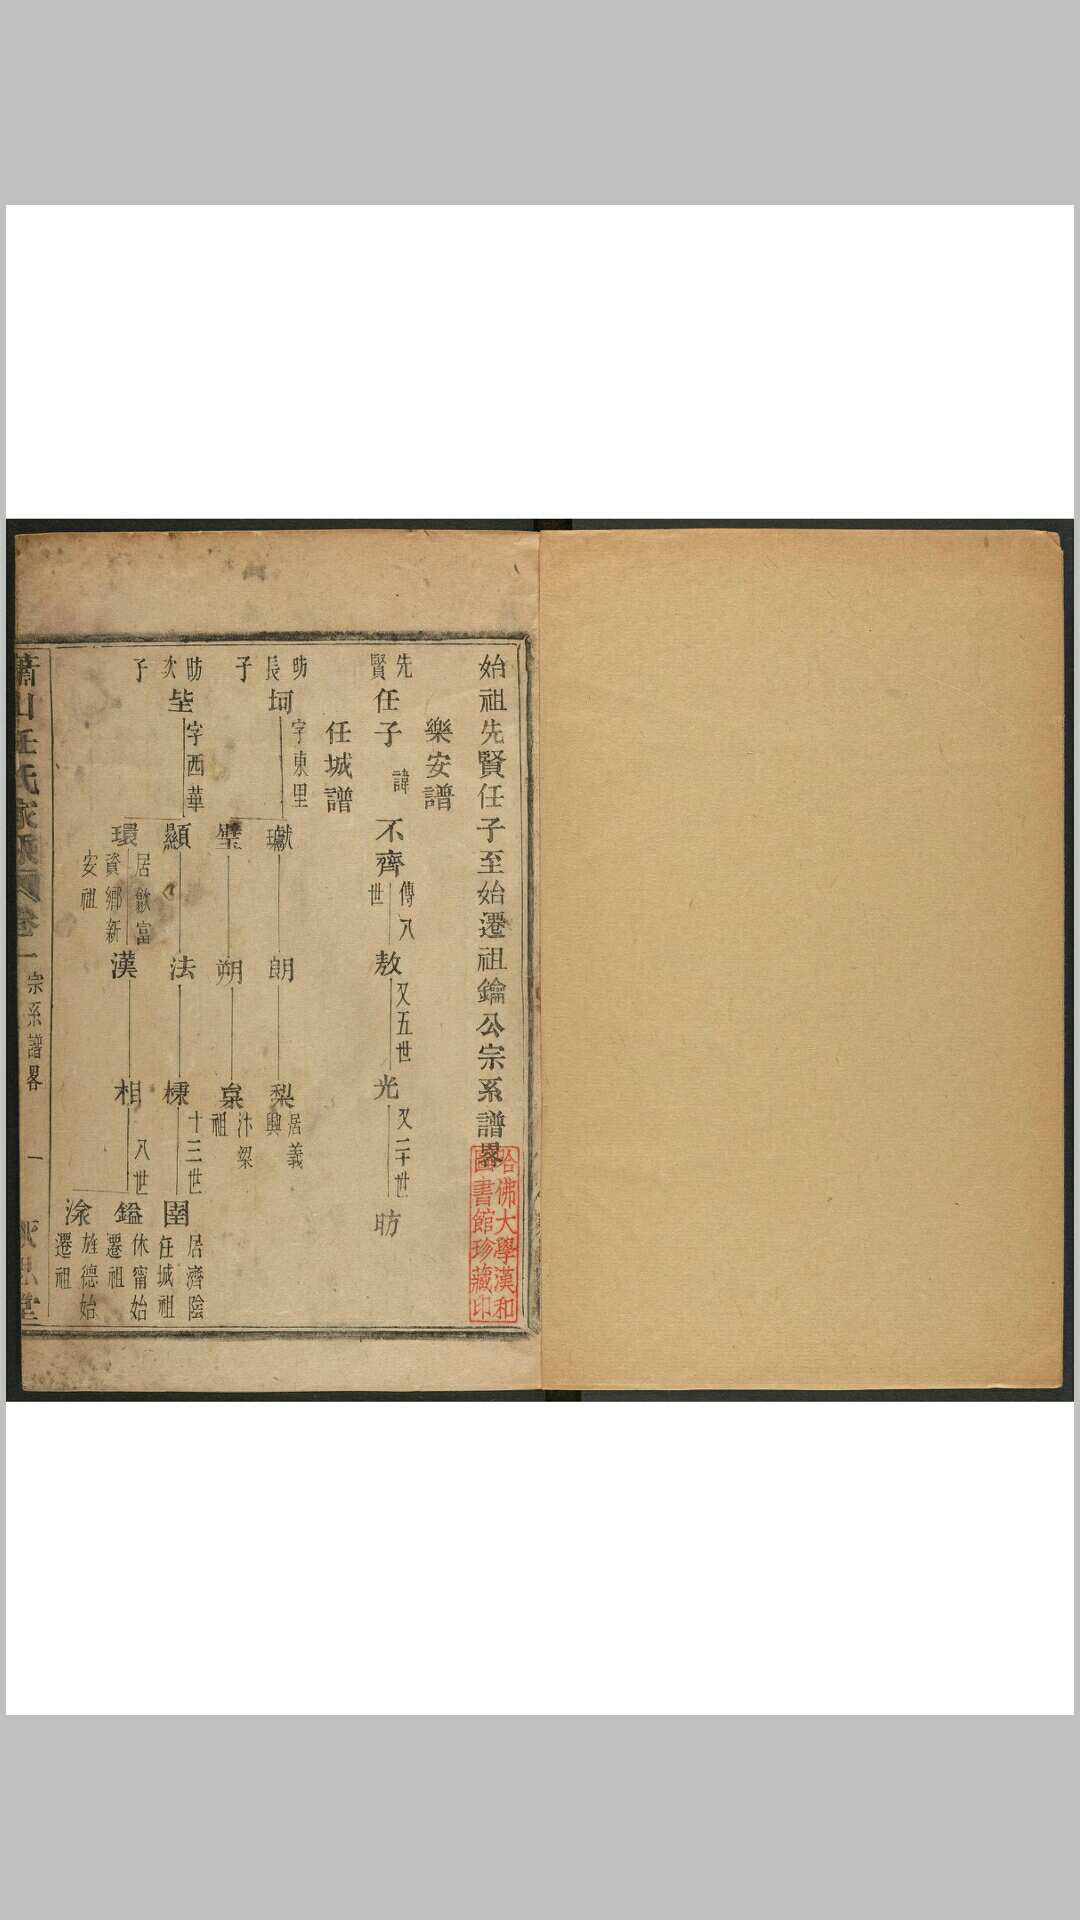 始祖先賢任子至始遷祖鑰公宗系譜畧
樂安譜
先賢任子 諱 不齊 傳八世 敖 又五世 光 又二十世 昉
任城譜
昉長子 坷 字東里 瓛 朗 梨 居義興
璧 朔 臬 汴梁祖
昉次子 坒 字西華 顯 法 棟 十三世 圉 居濟陰任城祖
環 居歙富資鄉新安祖 漢 相 八世 鎰 休甯始遷祖
旌德始遷祖
蕭山任氏家乘 卷一 宗系譜畧 一
哈佛大學漢和圖書館珍藏印